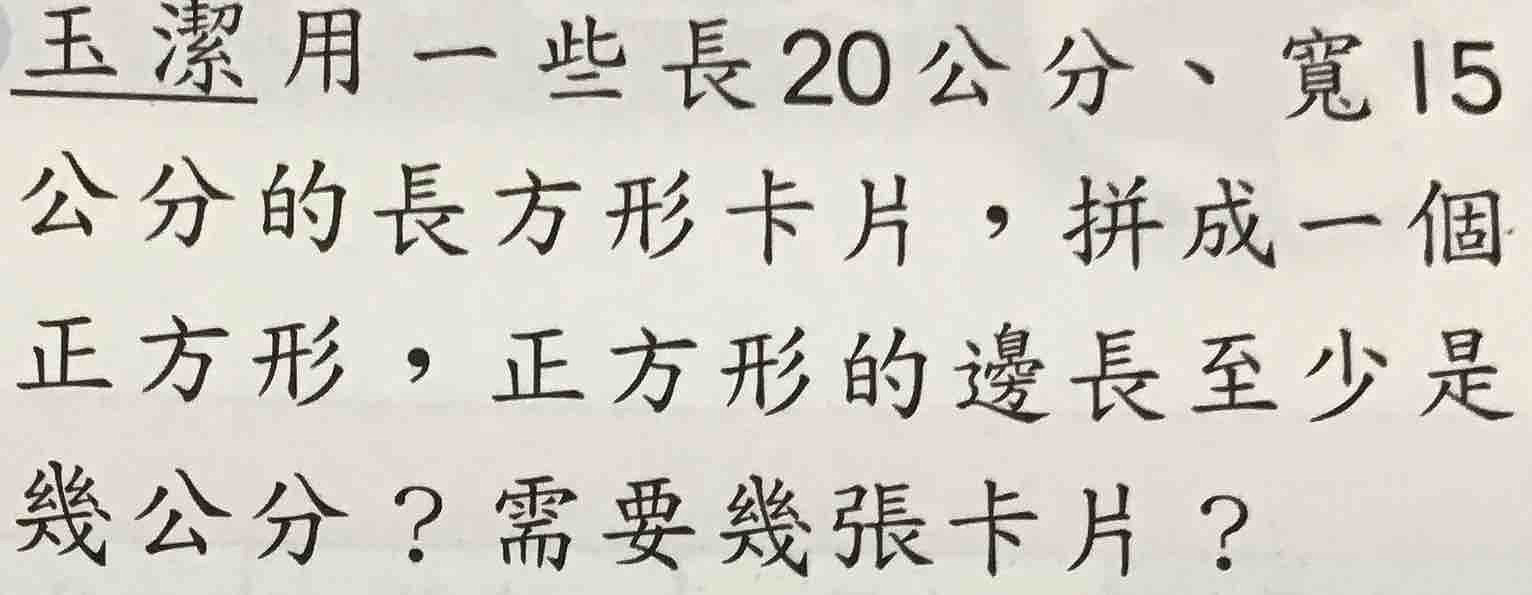 玉潔用一些長20公分、寬15
公分的長方形卡片，拼成一個
正方形，正方形的邊長至少是
幾公分？需要幾張卡片？